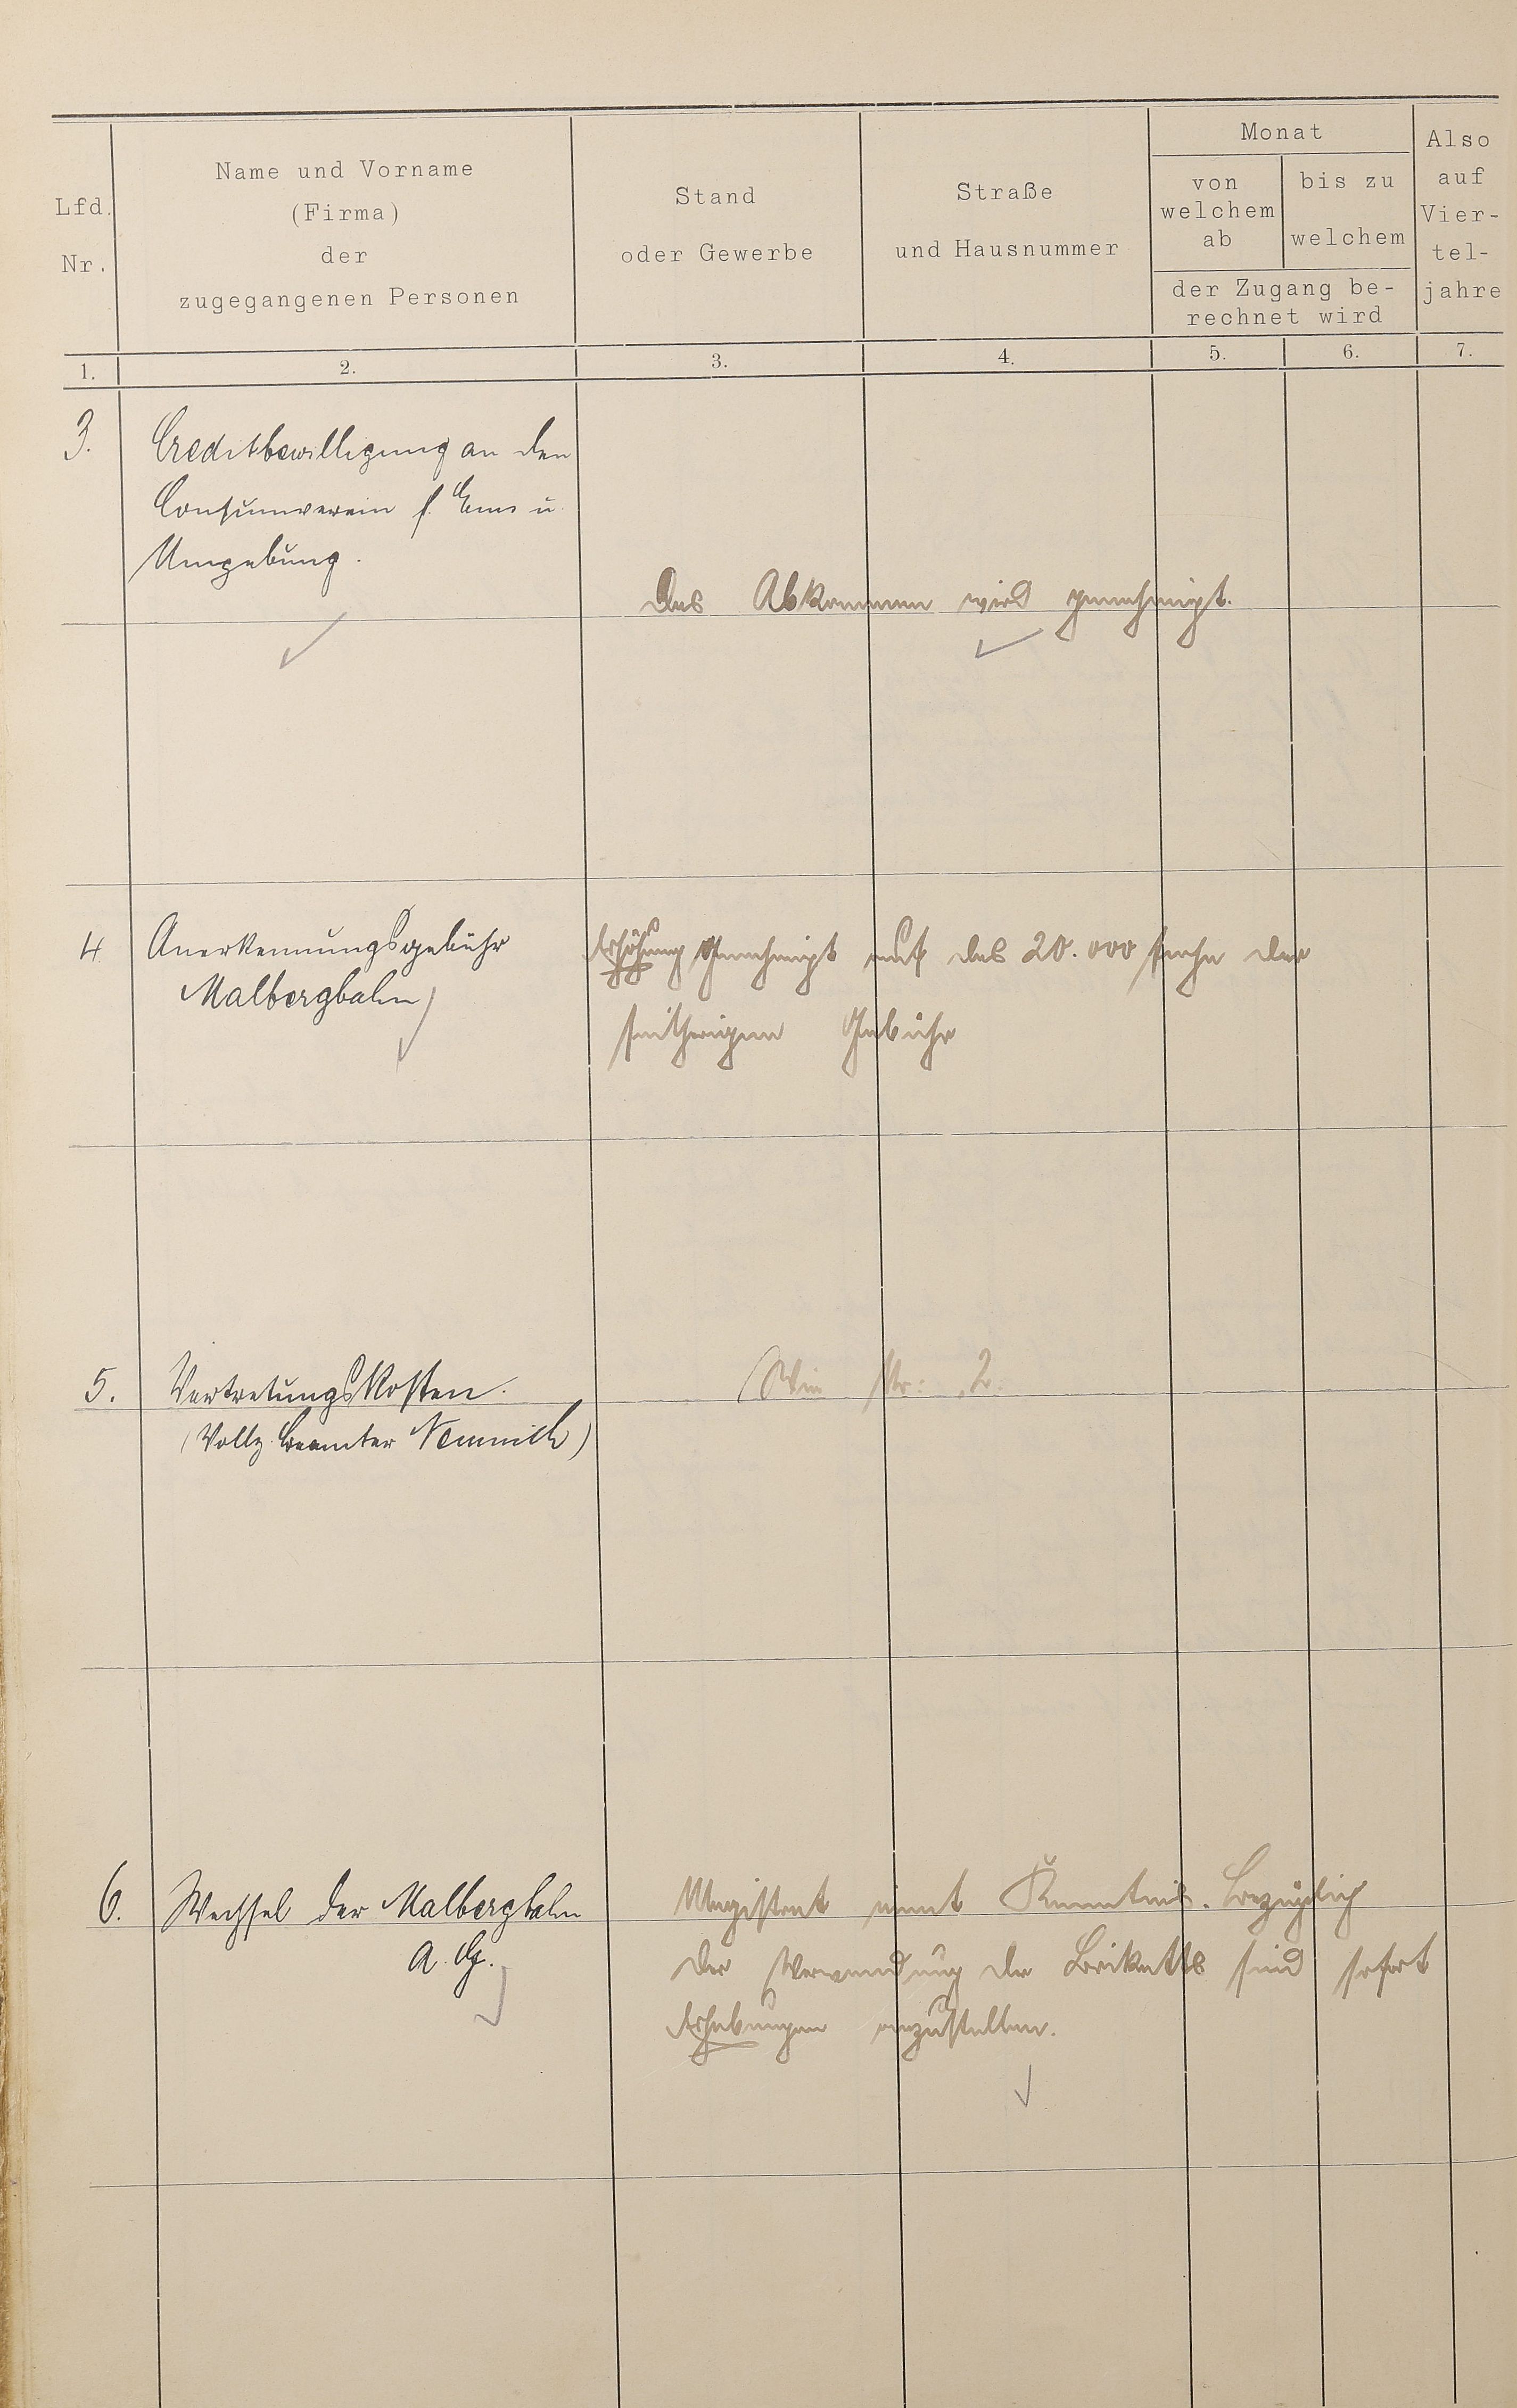 Lfd. Nr.
Name und Vorname
(Firma)
der
zugegangenen Personen
Stand
oder Gewerbe
Straße
und Hausnummer
Monat
von
welchem
ab
bis zu
welchem
der Zugang be-
rechnet wird
Also
auf
Vier-
tel-
jahre
1. 2. 3. 4. 5. 6. 7.
3. Creditbewilligung an den
Consumverein f. Ems u.
Umgebung.
Das Abkommen wird genehmigt.
4. Anerkennungsgebühr
Malbergbahn
Erhöhung genehmigt auf das 20.000 fache der
seitherigen Gebühr
5. Vertretungskosten.
(Vollz. beamter Nemnich)
(Wie Nr: 2.
6. Wechsel der Malbergbahn
A. G.
Magistrat nimt Kenntnis. Bezüglich
der Verwendung der Briketts sind sofort
Erhebungen anzustellen.